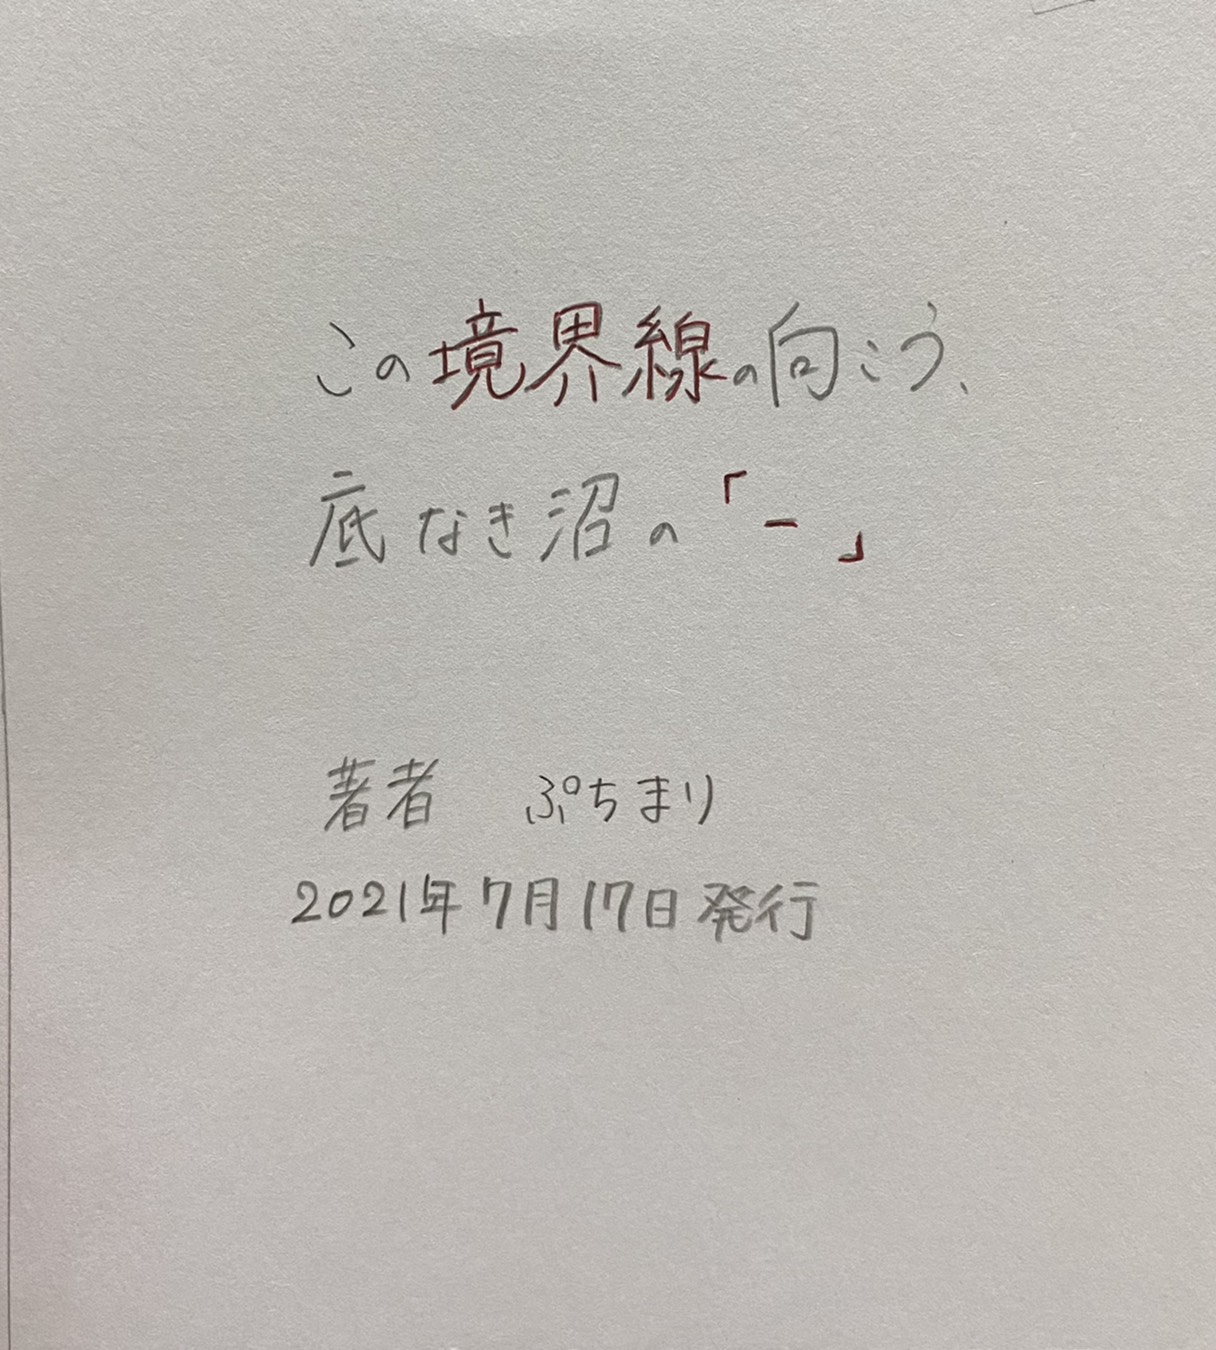 この境界線の向こう、
底なき沼の「-」
著者 ぷちまり
2021年7月17日発行